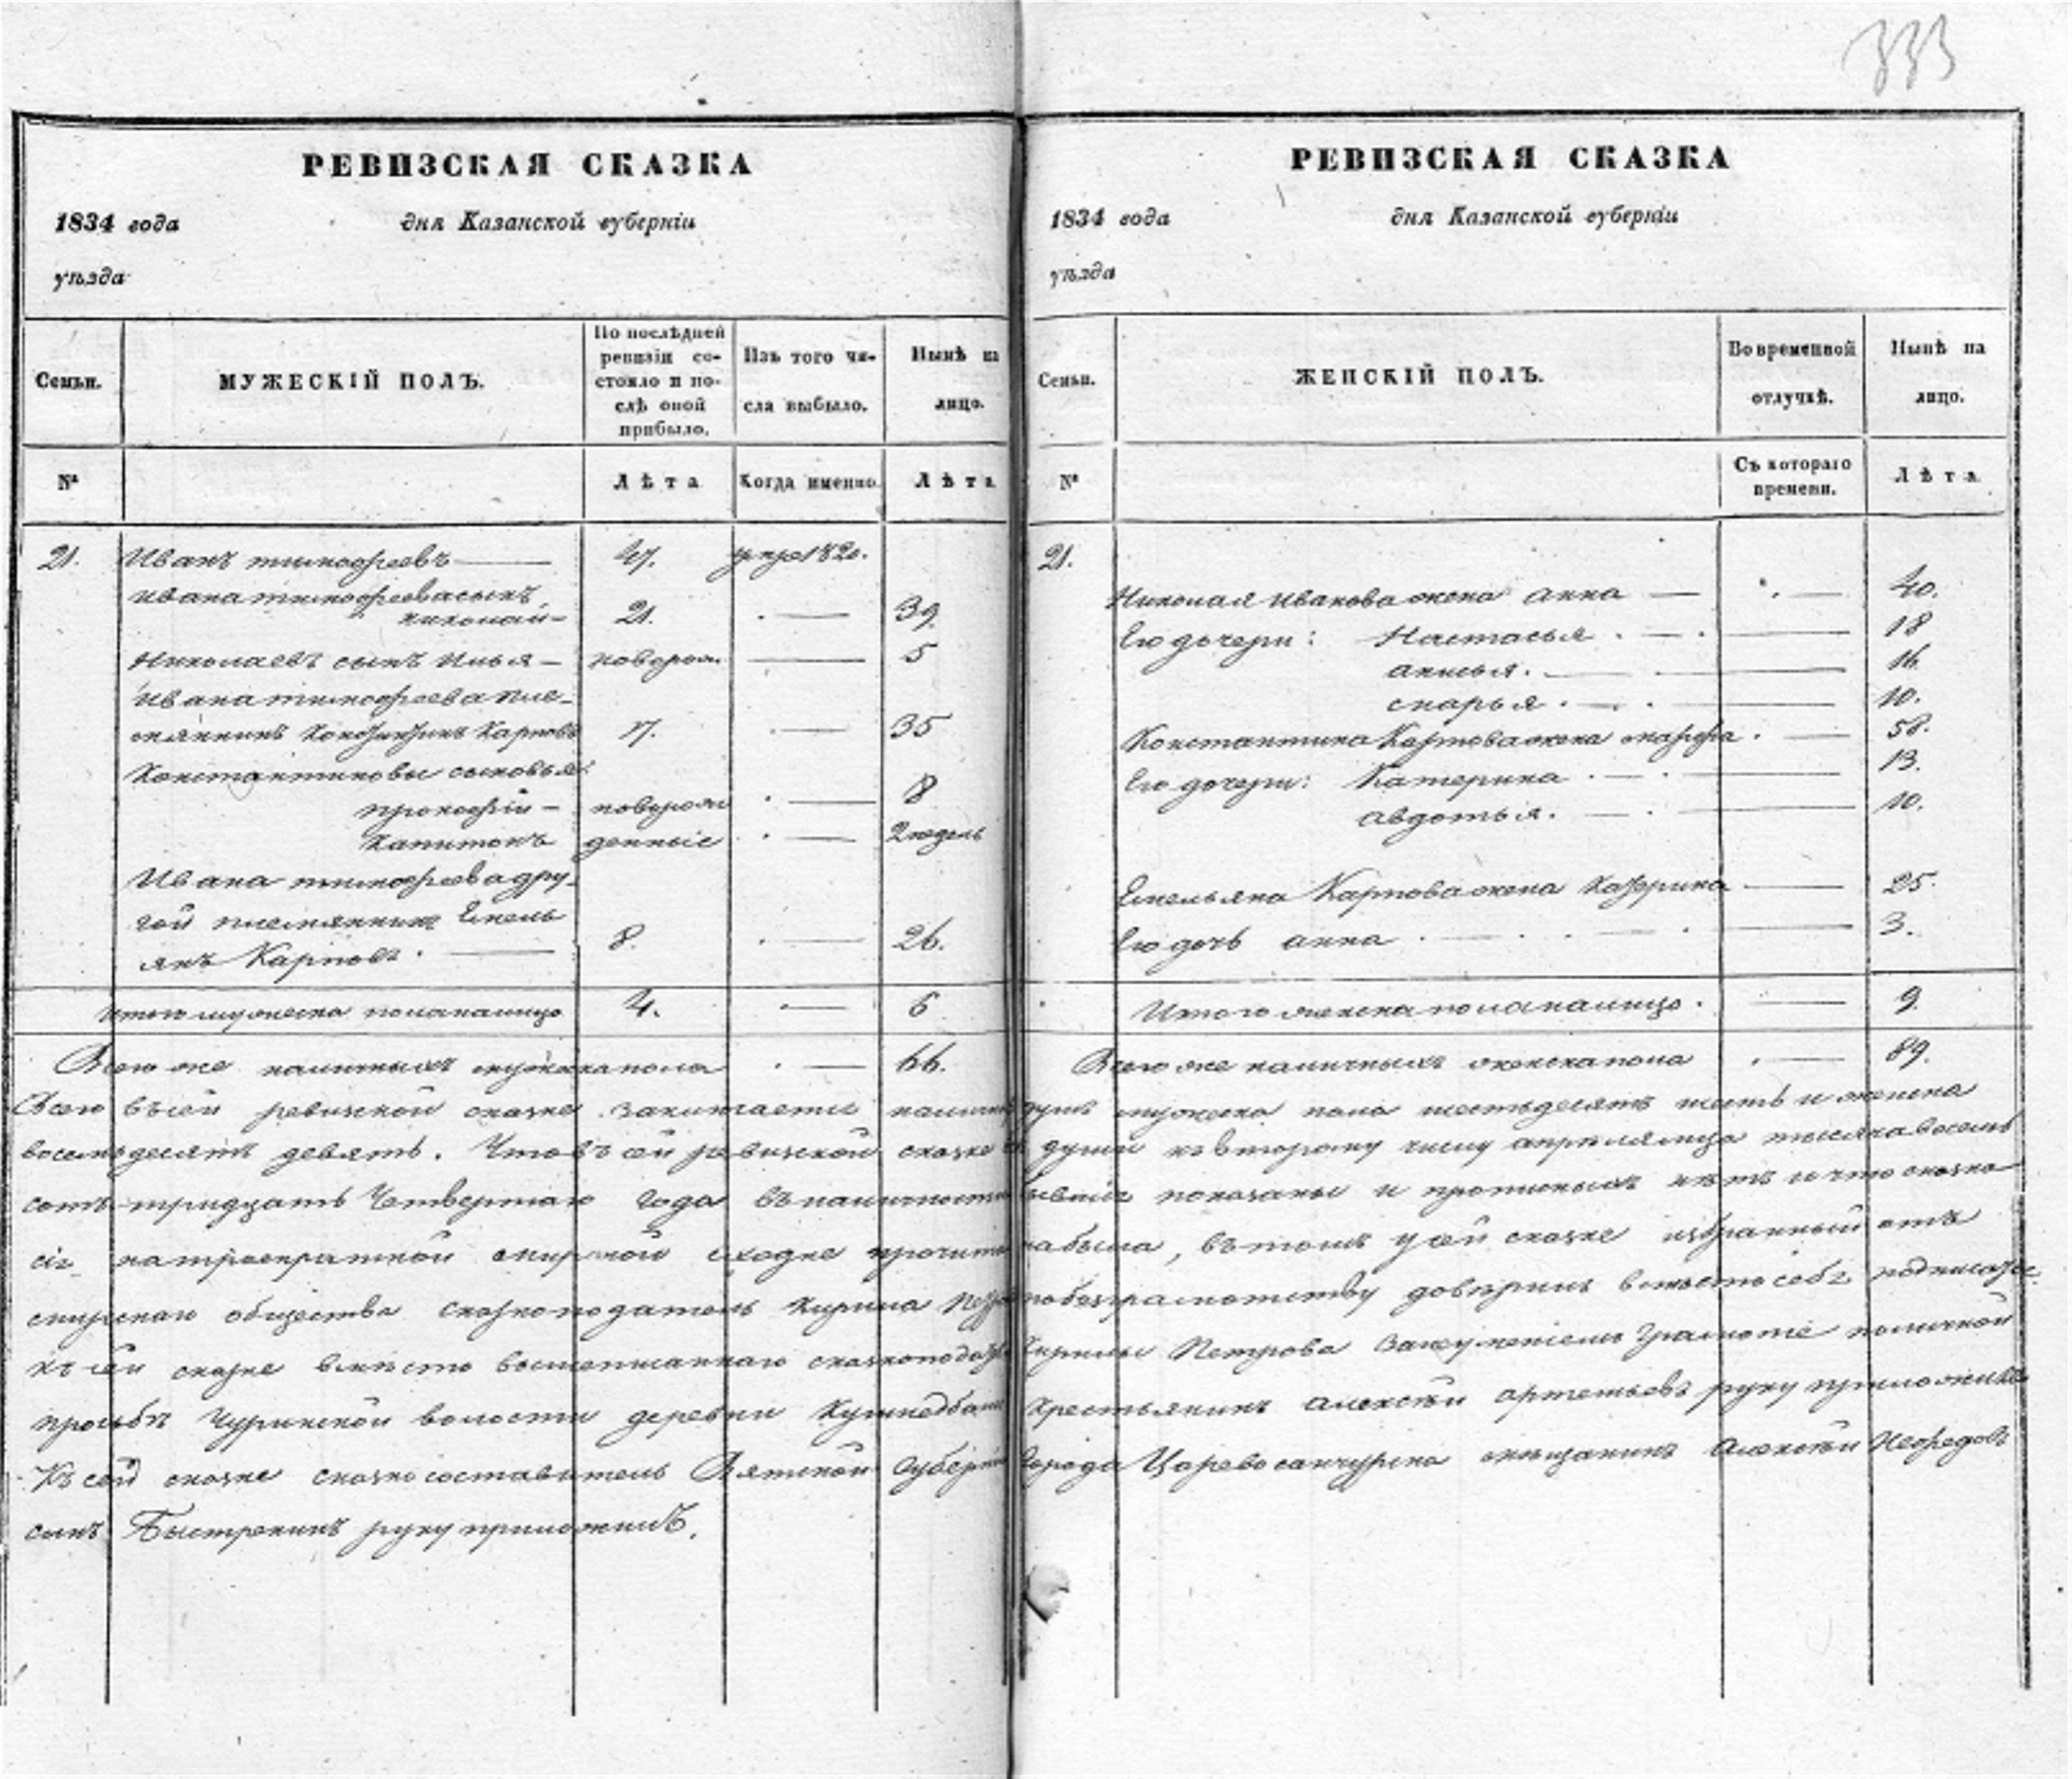 333
РЕВИЗСКАЯ СКАЗКА
1834 года дня Казанской губерніи
уѣзда
Семьи.
МУЖЕСКІЙ ПОЛЪ.
По послѣдней
ревизіи со-
стояло и по-
слѣ оной
прибыло.
Изъ того чи-
сла выбыло.
Нынѣ на
лицо.
№
Лѣта
Когда именно.
Лѣта
21. Иванъ тимофеевъ — 47. 1820.
Ивана тимофеева сынъ
николай — 21. — 39.
Николаевъ сынъ Илья — новорож — 5
Ивана тимофеева пле-
мянникъ Карповъ 17. — 35
Константиновы сыновья:
прокофій — новорож — 8
Капитонъ денные — 2 недель
Ивана тимофеева дру-
гой племянникъ Емель
янъ Карповъ. — 8. — 26.
Итого мужеска пола налицо 4. — 6
Всего же наличныхъ мужска пола — 66.
РЕВИЗСКАЯ СКАЗКА
1834 года дня Казанской губерніи
уѣзда
Семьи.
ЖЕНСКІЙ ПОЛЪ.
Во временной
отлучкѣ.
Нынѣ на
лицо.
№
Съ котораго
времени.
Лѣта
21.
Николая Иванова жена анна — 40.
Его дочери: Настасья — 18
анисья. — 16.
марья. — 10.
Константина Карпова жена марфа. — 58.
Его дочери: Катерина — 13.
авдотья. — 10.
Емельяна Карпова жена — 25.
Его дочь анна — 3.
Итого женска пола налицо. — 9.
Всего же наличныхъ женска пола — 89.
Всего въ сей ревизской сказке заключается налич душъ мужеска пола шестьдесятъ шесть и женска
восемьдесятъ девять. Что въ сей ревизской сказке души къ второму числу апреля месяца тысяча восемь
сотъ тридцать Четвертаго года въ наличности бывшіе показаны и прописныхъ нѣтъ и что сказка
сія на троекратной мирской сходке прочитана была, въ томъ у сей сказке избранный отъ
мирскаго общества сказкоподатель Кирила по безграмотству доверилъ вместо себя подписаться.
къ сей сказке вместо вышеписаннаго сказкоподателя Кирилы Петрова за неумениемъ Грамоте по личной
прозьбе Чуринской волости деревни Крестьянинъ алексѣй артемьевъ руку приложилъ
Къ сей сказке сказкосоставитель Вятской Губерніи Города Царевосанчурска мещанинъ алексѣй
сынъ Быстренинъ руку приложилъ.